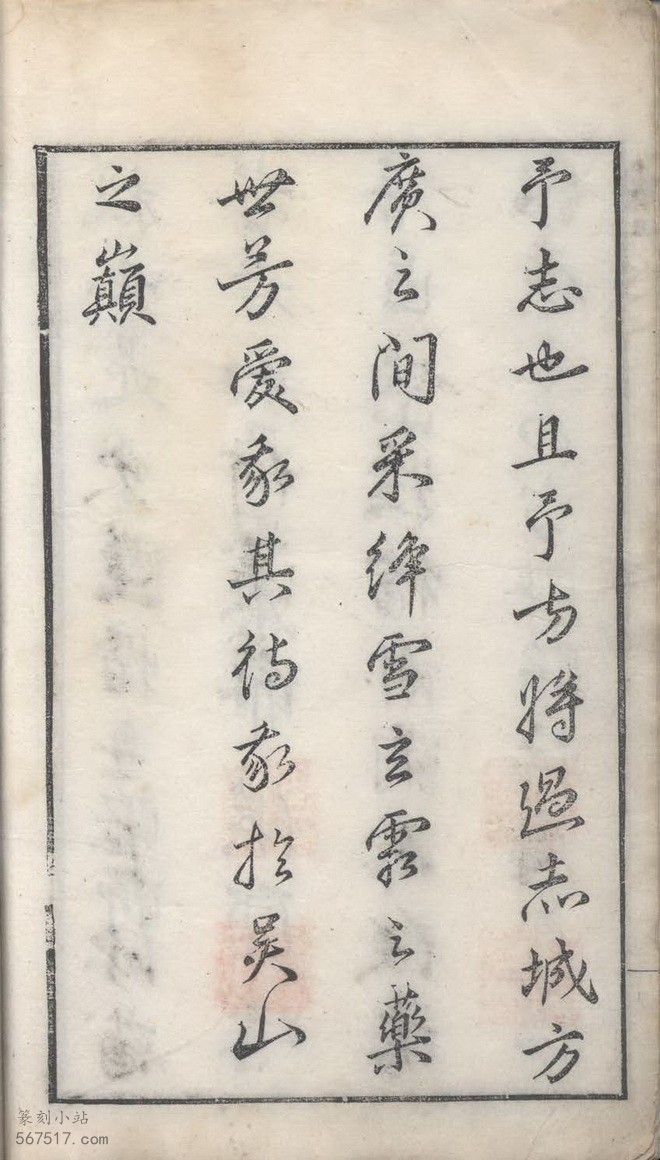 予志也且予方將過赤城方
廣之間采絳雪玄霜之藥
世芳愛我其待我於吳山
之巔
篆刻小站
567517.com